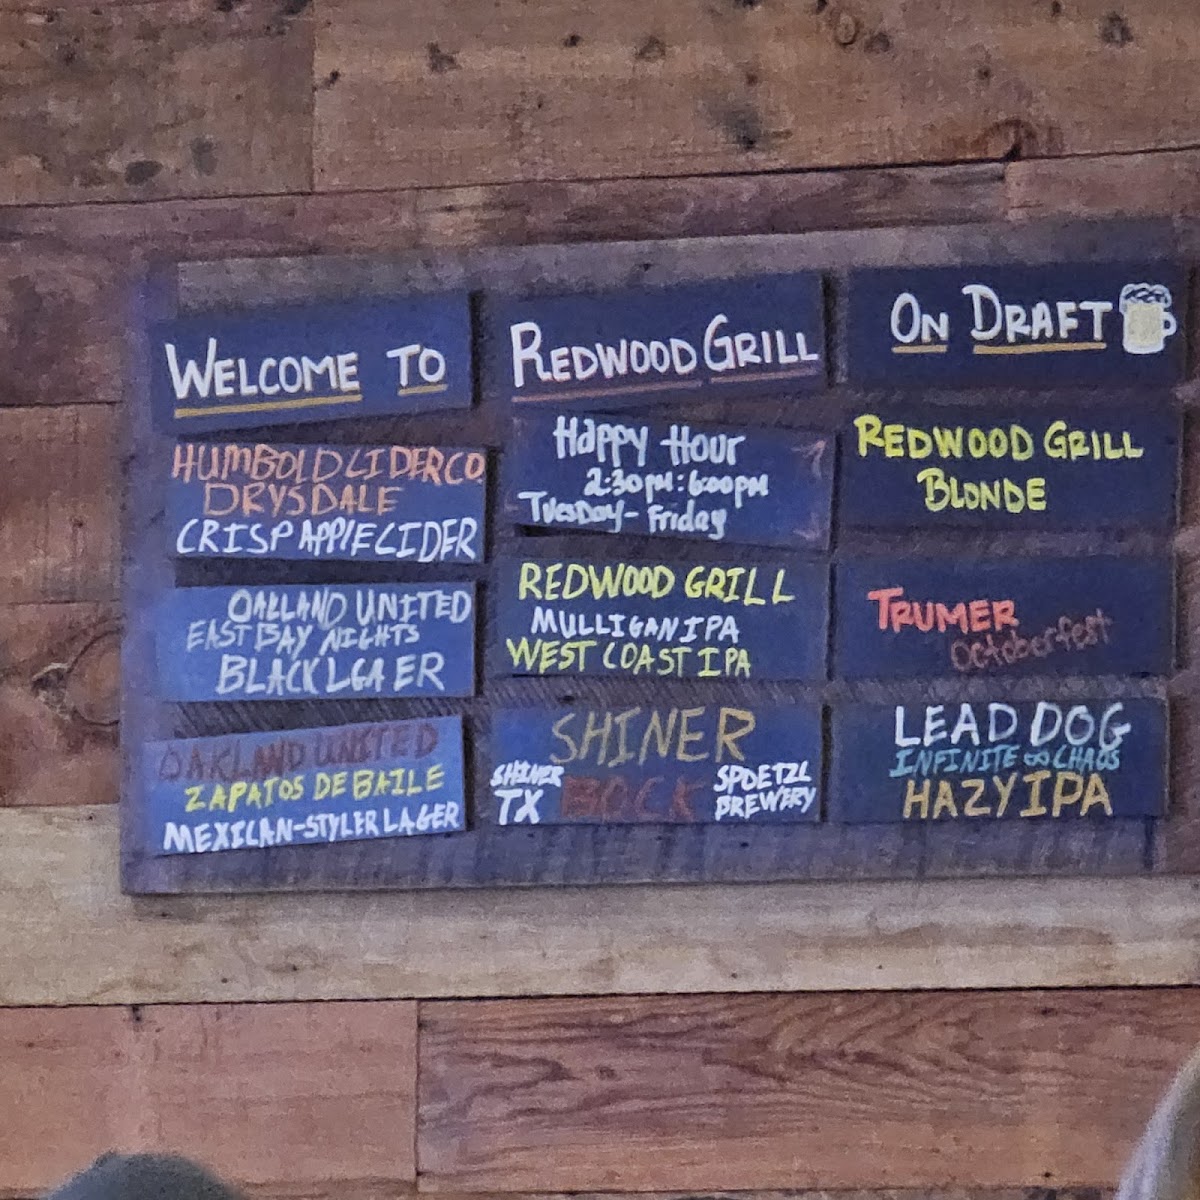 WELCOME TO
REDWOOD GRILL
ON DRAFT
HUMBOLD CIDER CO.
DRYSDALE
CRISP APPLE CIDER
OAKLAND UNITED
EAST BAY NIGHTS
BLACK LGAER
OAKLAND UNITED
ZAPATOS DE BAILE
MEXICAN-STYLER LAGER
Happy Hour
2:30PM: 6:00PM
TuesDay - Friday
REDWOOD GRILL
MULLIGAN IPA
WEST COAST IPA
SHINER
SHINER
TX
BOCK
SPOETZL
BREWERY
REDWOOD GRILL
BLONDE
TRUMER
Octoberfest
LEAD DOG
INFINITE ∞ CHAOS
HAZY IPA